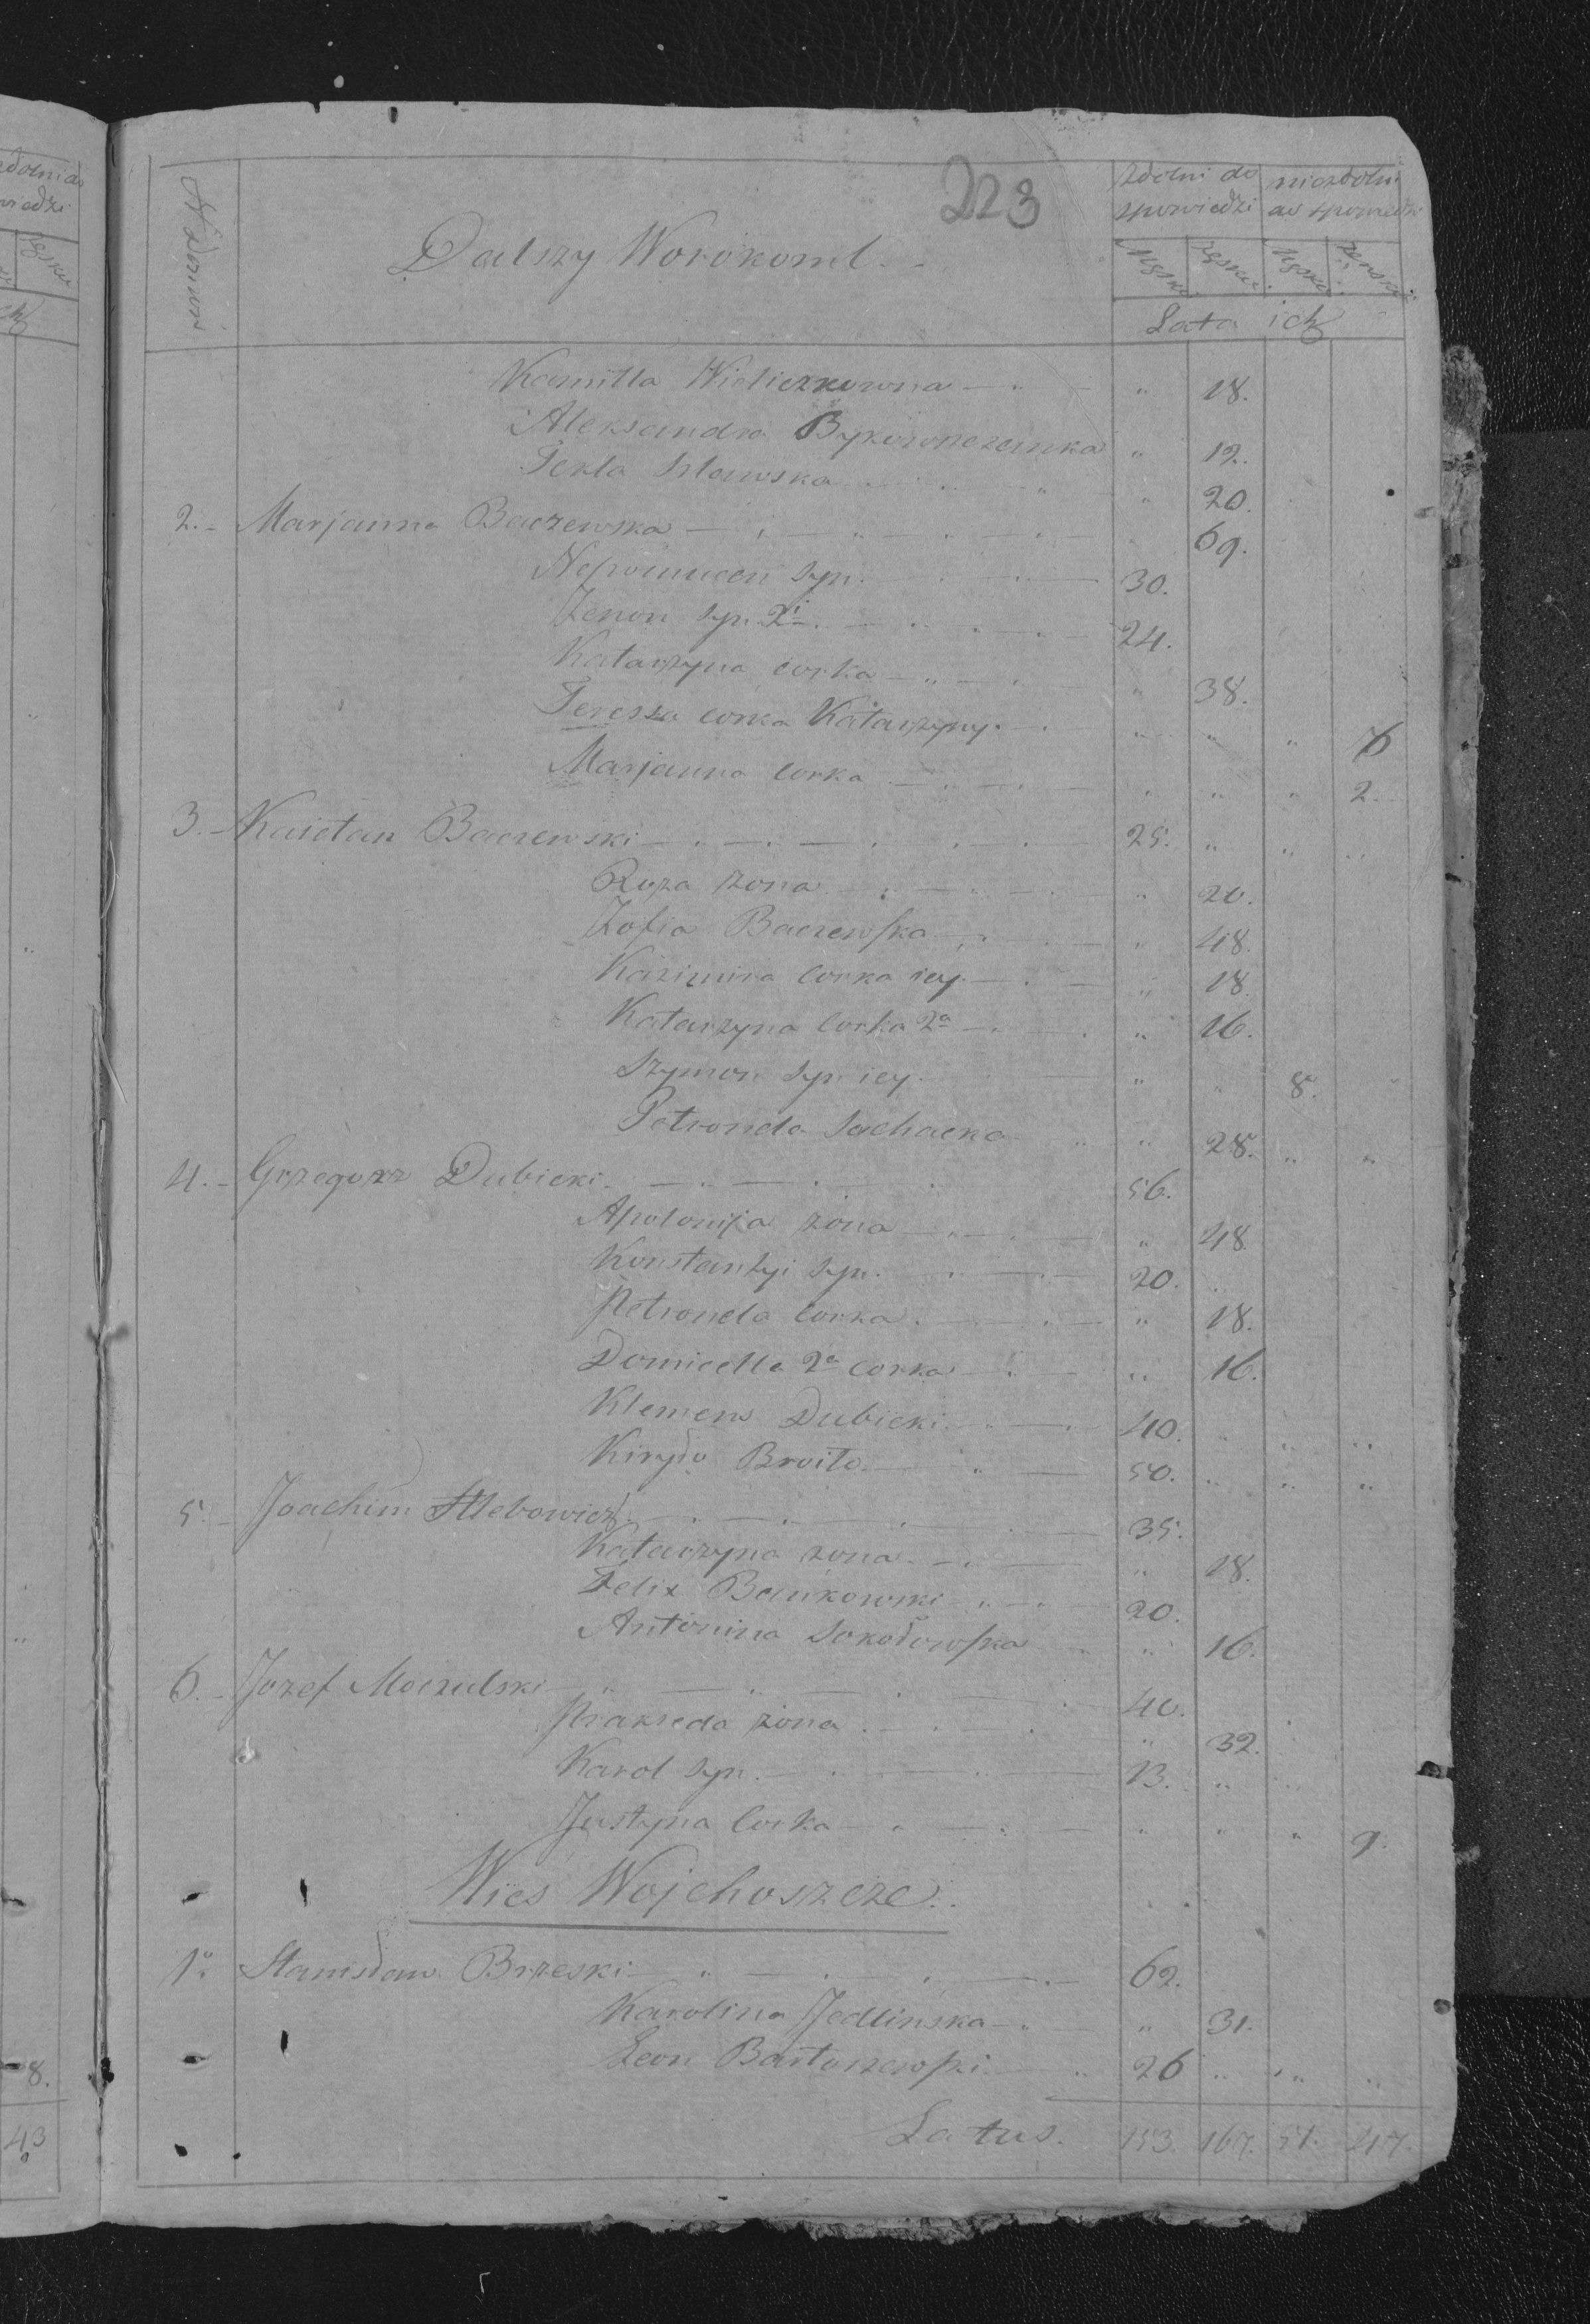 zdolni do
wiedzi
Zęskie
ich
8.
43
223
N Domow
Dalszy Worokoml.
Zdolni do spowiedzi
niezdolni do spowiedzi
Męskie Zęskie Męskie Zenskie
Lata ich
Kamilla Wieliczkowna " 18.
Aleksandra " 12.
Tekla " 20.
2. Marjanna Baczewska " 69.
Nepomucen syn. 30.
Zenon syn 2i 24.
Katarzyna corka " 38.
Teressa corka Katarzyny. " " " 6
Marjanna corka " " " 2.
3. Kaietan Baczewski 25. " " "
Roza zona " 20.
Zofia Baczewska " 48.
Kazimira corka iey " 18.
Katarzyna corka 2a " 16.
Szymon syn iey. " " 8.
Petronela Sachacka " 28. " "
4. Grzegorz Dubicki 56.
Apolonija zona " 48.
Konstantyi syn. 20.
Petronela corka " 18.
Domicella 2a corka " 16.
Klemens Dubicki 40. " " "
Kirydo Broito 50. " " "
5. Joachim Hlebowicz 35.
Katarzyna zona " 18.
Felix Bankowski 20.
Antonina Sokołowska " 16.
6. Jozef Moczulski 40.
Prakseda zona " 32.
Karol syn. 13. " "
Justyna Corka " " " 9.
Wies Wojchoszcze.
1o. Stanisław Brzeski 62.
Karolina Jedlinska " 31.
Leon Bartoszewski 26 " " "
Latus. 153. 167. 51. 47.